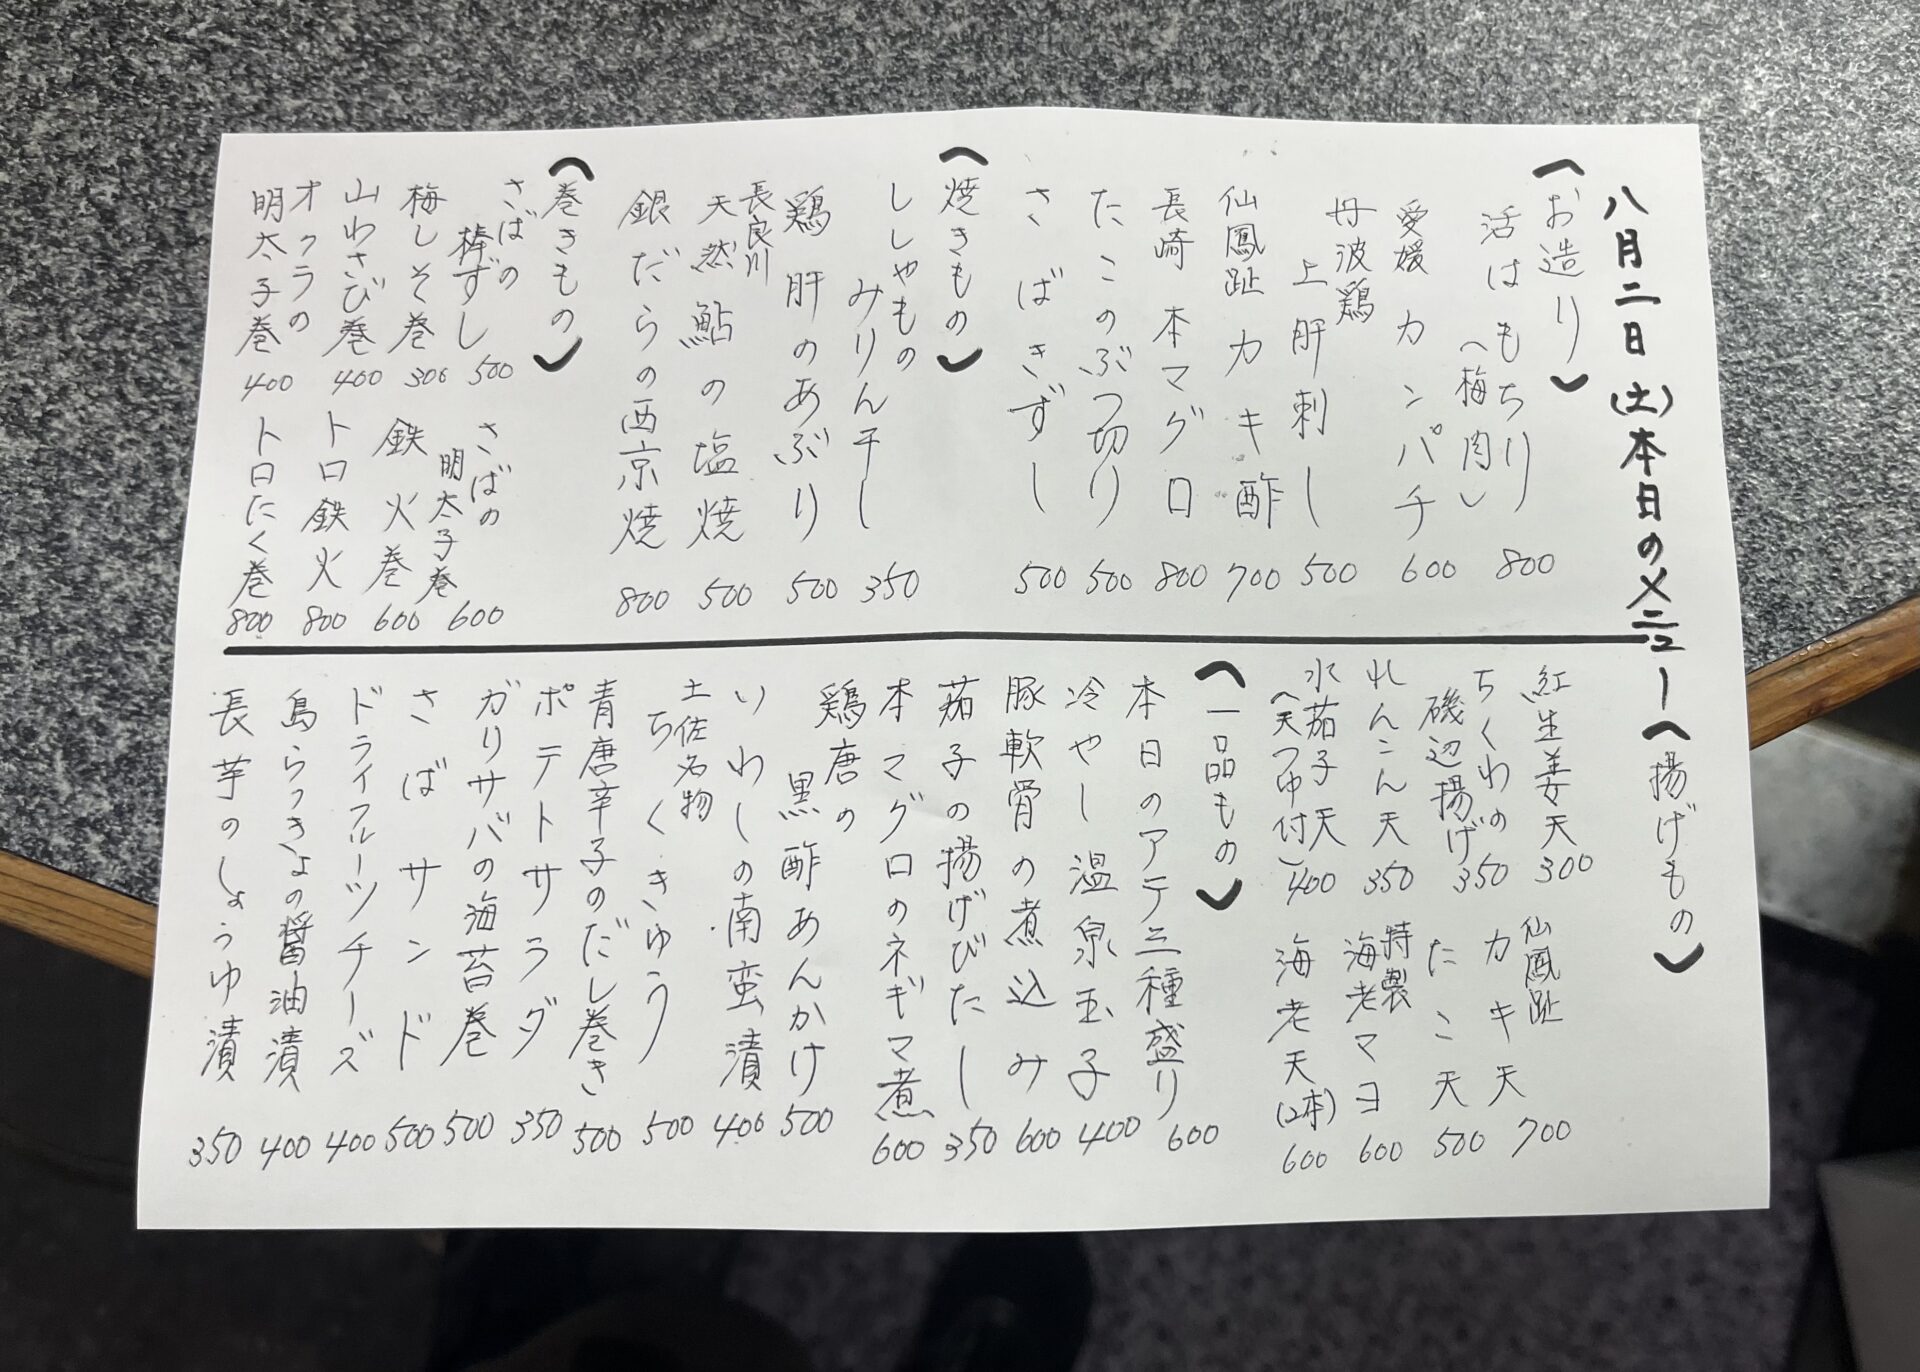 八月二日(土)本日のメニュー
(お造り)
活はもちり
(梅肉) 800
愛媛 カンパチ 600
丹波鶏
上肝刺し 500
仙鳳趾 カキ酢 700
長崎 本マグロ 800
たこのぶつ切り 500
さばきずし 500
(焼きもの)
ししゃもの
みりん干し 350
鶏肝のあぶり 500
長良川
天然鮎の塩焼 500
銀だらの西京焼 800
(巻きもの)
さばの
棒ずし 500
梅しそ巻 300
山わさび巻 400
オクラの
明太子巻 400
さばの
明太子巻 600
鉄火巻 600
トロ鉄火 800
トロたく巻 800
(揚げもの)
紅生姜天 300
ちくわの
磯辺揚げ 350
れんこん天 350
水茄子天
(天つゆ付) 400
仙鳳趾
カキ天 700
たこ天 500
特製
海老マヨ 600
海老天(2本) 600
(一品もの)
本日のアテ三種盛り 600
冷やし温泉玉子 400
豚軟骨の煮込み 600
茄子の揚げびたし 350
本マグロのネギマ煮 600
鶏唐の
黒酢あんかけ 500
いわしの南蛮漬 400
土佐名物
ちくきゅう 500
青唐辛子のだし巻き 500
ポテトサラダ 350
ガリサバの海苔巻 500
さばサンド 500
ドライフルーツチーズ 400
島らっきょの醤油漬 400
長芋のしょうゆ漬 350